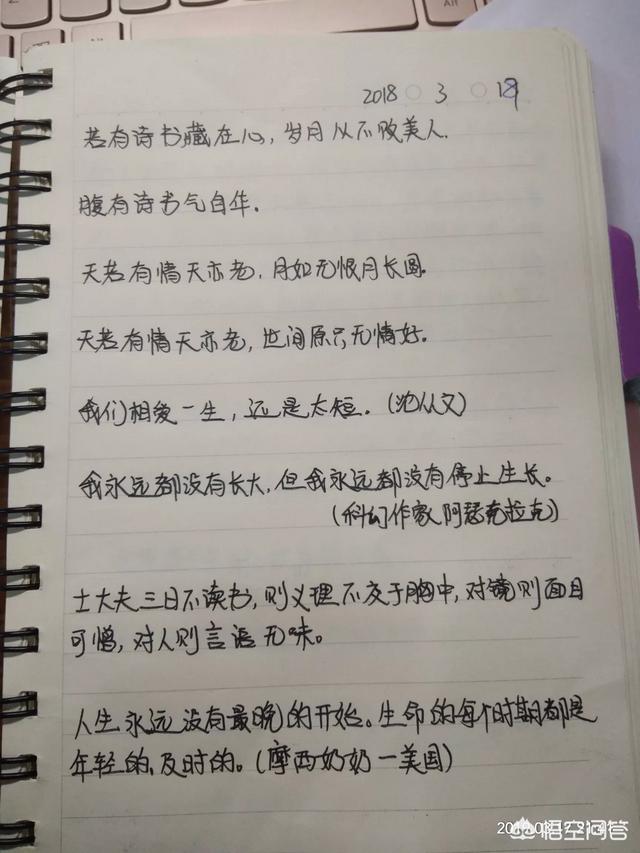 Alt
2018 3 19
若有诗书藏在心，岁月从不败美人.
腹有诗书气自华.
天若有情天亦老，月如无恨月长圆.
天若有情天亦老，世间原只无情好.
我们相爱一生，还是太短.（沈从文）
我永远都没有长大，但我永远都没有停止生长。
（科幻作家 阿瑟克拉克）
士大夫三日不读书，则义理不交于胸中，对镜则面目
可憎，对人则言语无味。
人生永远没有最晚的开始。生命的每个时期都是
年轻的、及时的。（摩西奶奶－美国）
悟空问答